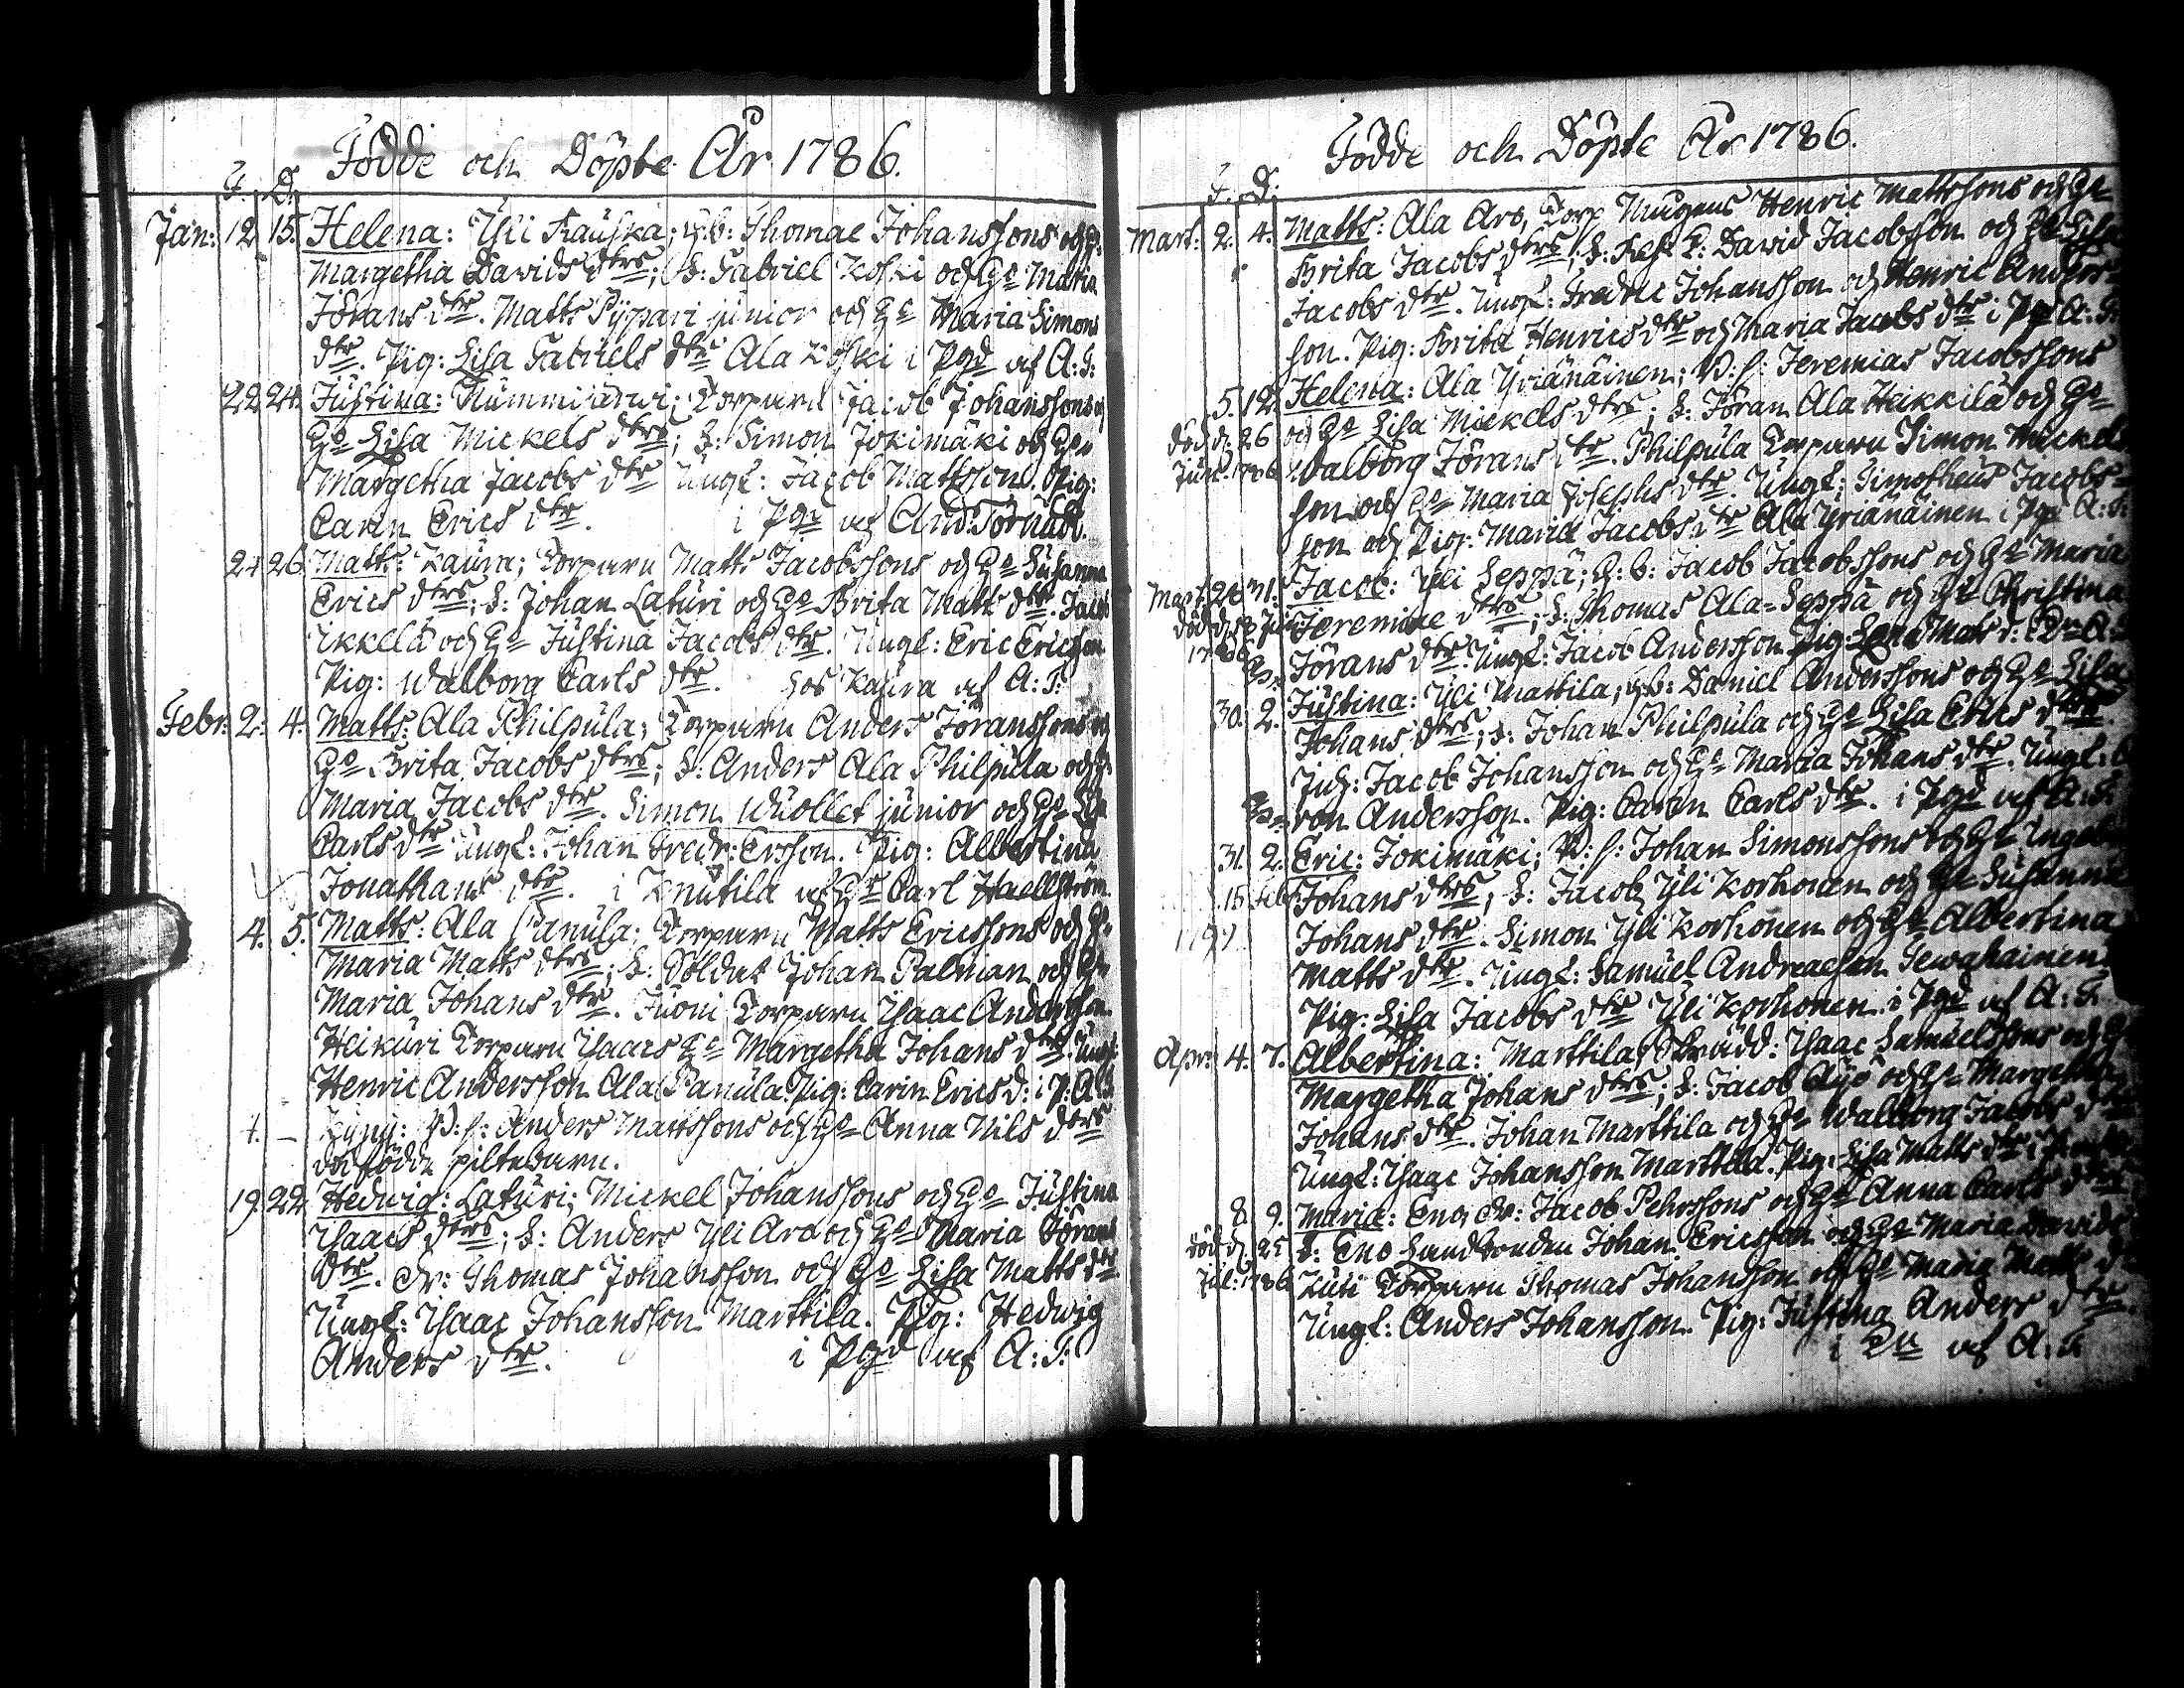 Födde och Döpte År 1786.
F. D.
Jan: 12 15. Helena: Yli Rauska; Gb: Thomae Johanssons och
Margetha Davids dtrs; S: Gabriel Koski och Ho Maria
Jörans dtr. Matts Pyppari junior och Ho Maria Simons
dtr. Pig: Lisa Gabriels dtr Ala Koski i Pgd af A: T:
22 24. Justina: Nummijärwi; Torparn Jacob Johanssons
Ho Lisa Mickels dtrs; S: Simon Jokimäki och Ho
Margetha Jacobs dtr Ungk: Jacob Mattsson. Pig:
Carin Erics dtr. i Pgd af And: Törnudd.
24 26 Matts: Kaura; Torparn Matts Jacobssons och Ho Susanna
Erics dtrs; S: Johan Laturi och Ho Brita Matts dtr. Jacob
Ikkelä och Ho Justina Jacobs dtr. Ungk: Eric Ericsson
Pig: Walborg Carls dtr. hos Kaura af A: T:
Febr: 2. 4. Matts: Ala Philpula; Torparn Anders Jöranssons
Ho Brita Jacobs dtrs; S: Anders Ala Philpula och
Maria Jacobs dtr. Simon Wuollet junior och Ho Lisa
Carls dtr Ungk: Johan Fredr: Ersson. Pig: Albertina
Jonathans dtr. i Knutila af Carl Haellström.
4. 5. Matts: Ala Panula; Torparn Matts Ericssons och
Maria Matts dtrs; S: Soldat Johan Palman och Ho
Maria Johans dtr. Juoni Torparn Isaac Andersson
Heikuri Torparn Isaacs Ho Margetha Johans dtr. Ungk:
Henric Andersson Ala Panula Pig: Carin Erics d: i P: A:
4. – Kyny: B: s: Anders Mattssons och Ho Anna Nils dtrs
dödfödde piltebarn.
19. 22 Hedwig: Laturi; Mickel Johanssons och Ho Justina
Isaacs dtrs; S: Anders Yli Aro och Ho Maria Jörans
dtr. Dr: Thomas Johansson och Ho Lisa Matts dtr
Ungk: Isaac Johansson Marttila. Pig: Hedwig
Anders dtr. i Pgd af A: T:
Födde och Döpte År 1786.
F. D.
Mart: 2. 4. Matts: Ala Aro, Torp Henric Mattssons och Ho
Brita Jacobs dtrs; S: David Jacobsson och Ho Lisa
Jacobs dtr. Ungk: Fredric Johansson och Henric Anders-
son. Pig: Brita Henrics dtr och Maria Jacobs dtr i Pgd A: T:
5. 12. Helena: Ala Yrjänäinen; B: s: Jeremias Jacobssons
död d. 26 och Ho Lisa Mickels dtrs; S: Jöran Ala Heikkilä och Ho
1786. Walborg Jörans dtr. Philpula Torparn Simon Mickels
son och Ho Maria Josephs dtr. Ungk: Timotheus Jacobs-
son och Pig: Maria Jacobs dtr Ala Yrjänäinen i Pgd A: T:
Mart: 31. Jacob: Yli Seppä; G: b: Jacob Jacobssons och Ho Maria
Jeremiae dtrs; S: Thomas Ala-Seppä och Ho Christina
Jörans dtr. Ungk: Jacob Andersson Pig: Lena Matts d:
30. 2. Justina: Yli Mattila; Gb: Daniel Anderssons och Ho Lisa
Johans dtrs; S: Johan Philpula och Ho Lisa Erics dtr.
Inh: Jacob Johansson och Ho Maria Johans dtr. Ungk:
ron Andersson. Pig: Carin Carls dtr. i Pgd af A: T:
31. 2. Eric: Jokimäki; B: s: Johan Simonssons och Ho
15 Feb Johans dtrs; S: Jacob Yli Korhonen och Ho Susanna
Johans dtr. Simon Yli Korhonen och Ho Albertina
Matts dtr. Ungk: Samuel Andreaeson
Pig: Lisa Jacobs dtr Yli Korhonen i Pgd af A: T:
Apr: 4. 7. Albertina: Marttila; Skrädd: Isaac Samuelssons och
Margetha Johans dtrs; S: Jacob Äijö och Ho Margetha
Johans dtr. Johan Marttila och Ho Walborg Jacobs dtr
Ungk: Isaac Johansson Marttila. Pig: Lisa Matts dtr
8. 9. Maria: Eno, Dr: Jacob Pehrssons och Ho Anna Carls dtrs
död d. 25 S: Eno Landbonden Johan Ericsson och Ho Maria Davids
Jul. 1786 Torparn Thomas Johansson och Ho Maria Matts
Ungk: Anders Johansson. Pig: Justina Anders dtr.
i af A: T: